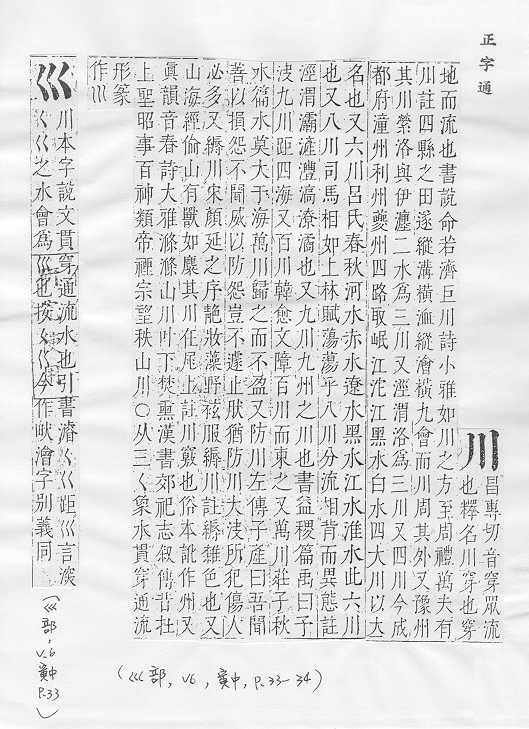 正字通
川昌專切音穿眾流
也釋名川穿也穿
地而流也書說命若濟巨川詩小雅如川之方至周禮萬夫有
川註四縣之田遂縱溝橫洫縱澮橫九會而川周其外又豫州
其川滎洛與伊瀍二水為三川又涇渭洛為三川又四川今成
都府潼州利州夔州四路取岷江沱江黑水白水四大川以大
名也又六川呂氏春秋河水赤水遼水黑水江水淮水此六川
也又八川司馬相如上林賦蕩蕩乎八川分流相背而異態註
涇渭灞滻灃滈潦潏也又九川九州之川也書益稷篇禹曰予
決九川距四海又百川韓愈文障百川而東之又萬川莊子秋
水篇水莫大于海萬川歸之而不盈又防川左傳子產曰吾聞
善以損怨不聞威以防怨豈不遽止肰猶防川大決所犯傷人
必多又縟川宋顏延之序靘妝藻野袨服縟川註縟雜色也又
山海經倫山有獸如麋其川在尾上註川竅也俗本訛作州又
眞韻音春詩大雅滌滌山川叶下焚熏漢書郊祀志叙傳昔在
上聖昭事百神類帝禋宗望秩山川○从三〈象水貫穿通流
形篆
作巛
巛川本字說文貫穿通流水也引書濬〈巜距巛言深
〈巜之水會為巛也按〈巜今作畎澮字別義同
(巛部, v.6, 寅中, P.33-34)
(巛部, v.6 寅中 P.33)